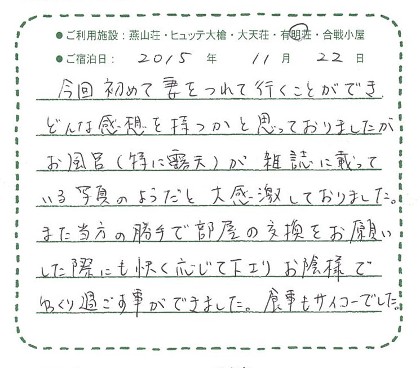 ●ご利用施設：燕山荘・ヒュッテ大槍・大天荘・有明荘・合戦小屋
●ご宿泊日：2015年 11月 22日
今回初めて妻をつれて行くことができ
どんな感想を持つかと思っておりましたが
お風呂(特に露天)が雑誌に載って
いる写真のようだと大感激しておりました。
また当方の勝手で部屋の交換をお願い
した際にも快く応じて下エリお陰様で
ゆっくり過ごす事ができました。食事もサイコーでした。